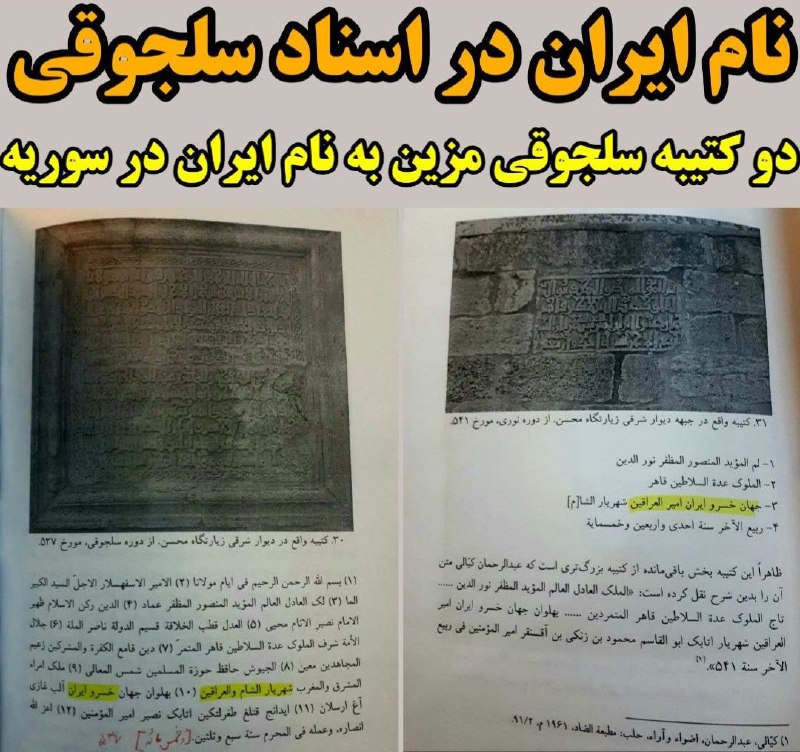 نام ایران در اسناد سلجوقی
دو کتیبه سلجوقی مزین به نام ایران در سوریه
۳۱. کتیبه واقع در جبهه دیوار شرقی زیارتگاه محسن. از دوره نوری، مورخ ۵۴۱.
۱- لم المؤید المنصور المظفر نور الدین
۲- الملوک عدة السلاطین قاهر
۳- جهان خسرو ایران امیر العراقین شهریار الشا[م]
۴- ربیع الآخر سنة احدی واربعین وخمسمایة
ظاهراً این کتیبه بخش باقی‌مانده از کتیبه بزرگ‌تری است که عبدالرحمان کیّالی متن
آن را بدین شرح نقل کرده است: «الملک العادل العالم المؤید المظفر نور الدین ......
تاج الملوک عدة السلاطین قاهر المتمردین ...... پهلوان جهان خسرو ایران امیر
العراقین شهریار اتابک ابو القاسم محمود بن زنکی بن آقسنقر امیر المؤمنین فی ربیع
الآخر سنة ۵۴۱».(۱)
۱) کیّالی، عبدالرحمان، اضواء وآراء، حلب: مطبعة الضاد، ۱۹۶۱ م، ۹۱/۲.
۳۰. کتیبه واقع در دیوار شرقی زیارتگاه محسن. از دوره سلجوقی، مورخ ۵۳۷.
(۱) بسم الله الرحمن الرحیم فی ایام مولانا (۲) الامیر الاسفهسلار الاجلّ السید الکبیر
الما (۳) لک العادل العالم المؤید المنصور المظفر عماد (۴) الدین رکن الاسلام ظهر
الامام نصیر الانام محیی (۵) العدل قطب الخلافة قسیم الدولة ناصر الملة (۶) جلال
الأمة شرف الملوک عدة السلاطین قاهر المتمرّ (۷) دین قامع الکفرة والمشرکین زعیم
المجاهدین معین (۸) الجیوش حافظ حوزة المسلمین شمس المعالی (۹) ملک امراء
المشرق والمغرب شهریار الشام والعراقین (۱۰) پهلوان جهان خسرو ایران آلب غازی
آغ ارسلان (۱۱) ایدانج قتلغ طغرلتکین اتابک نصیر امیر المؤمنین (۱۲) اعز الله
انصاره، وعمله فی المحرم سنة سبع وثلثین.